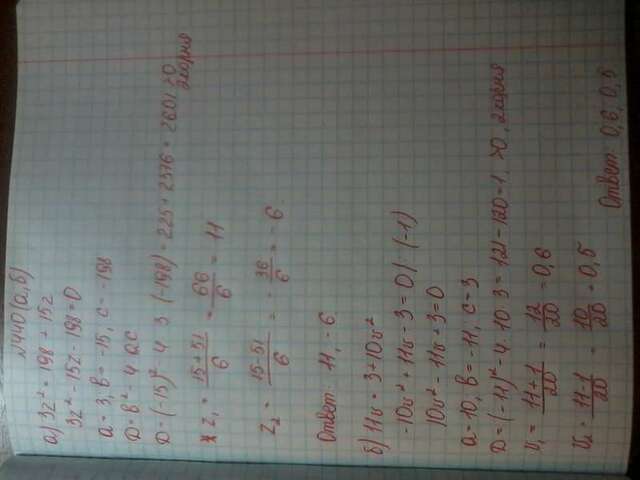 №440(а,б)
а) 3z² = 198 + 15z
3z² - 15z - 198 = 0
a = 3, b = -15, c = -198
D = b² - 4ac
D = (-15)² - 4 · 3 · (-198) = 225 + 2376 = 2601 > 0
2 корня
z₁ = (15 + 51)/6 = 66/6 = 11
z₂ = (15 - 51)/6 = -36/6 = -6
Ответ: 11, -6.
б) 11v = 3 + 10v²
-10v² + 11v - 3 = 0 | · (-1)
10v² - 11v + 3 = 0
a = 10, b = -11, c = 3
D = (-11)² - 4 · 10 · 3 = 121 - 120 = 1, > 0, 2 корня
v₁ = (11 + 1)/20 = 12/20 = 0,6
v₂ = (11 - 1)/20 = 10/20 = 0,5
Ответ: 0,6, 0,5